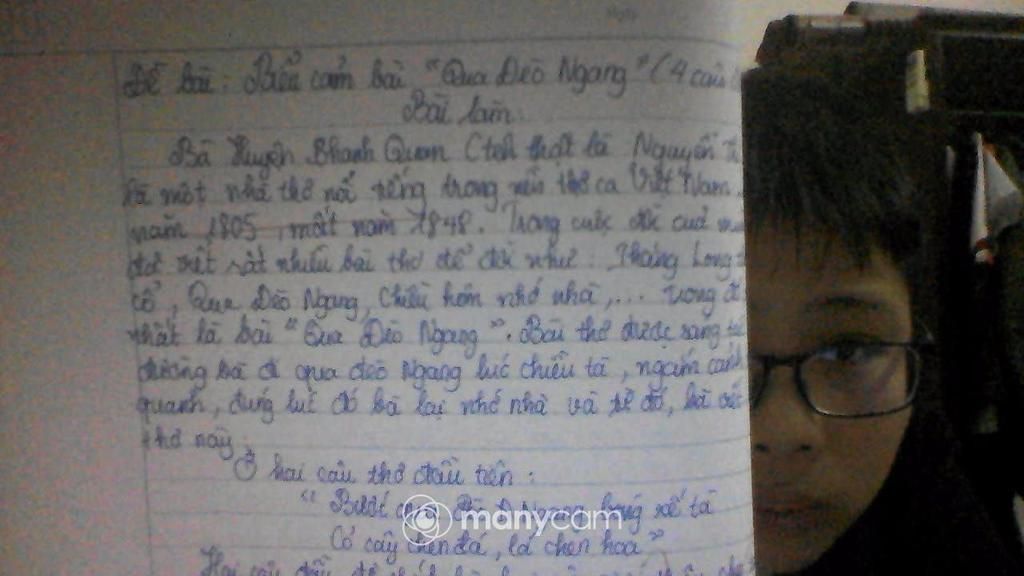 Đề bài: Biểu cảm bài "Qua Đèo Ngang" (4 câu
Bài làm:
Bà Huyện Thanh Quan (tên thật là Nguyễn
là một nhà thơ nổi tiếng trong nền thơ ca Việt Nam.
năm 1805, mất năm 1848. Trong cuộc đời của
đã viết rất nhiều bài thơ để đời như: Thăng Long
cổ, Qua Đèo Ngang, Chiều hôm nhớ nhà,... trong
nhất là bài "Qua Đèo Ngang". Bài thơ được sáng
đường bà đi qua đèo Ngang lúc chiều tà, ngắm cảnh
quanh, đúng lúc đó bà lại nhớ nhà và từ đó, bà
thơ này.
Ở hai câu thơ đầu tiên:
"Bước Đèo Ngang bóng xế tà
Cỏ cây chen đá, lá chen hoa"
Hai câu đầu
manycam